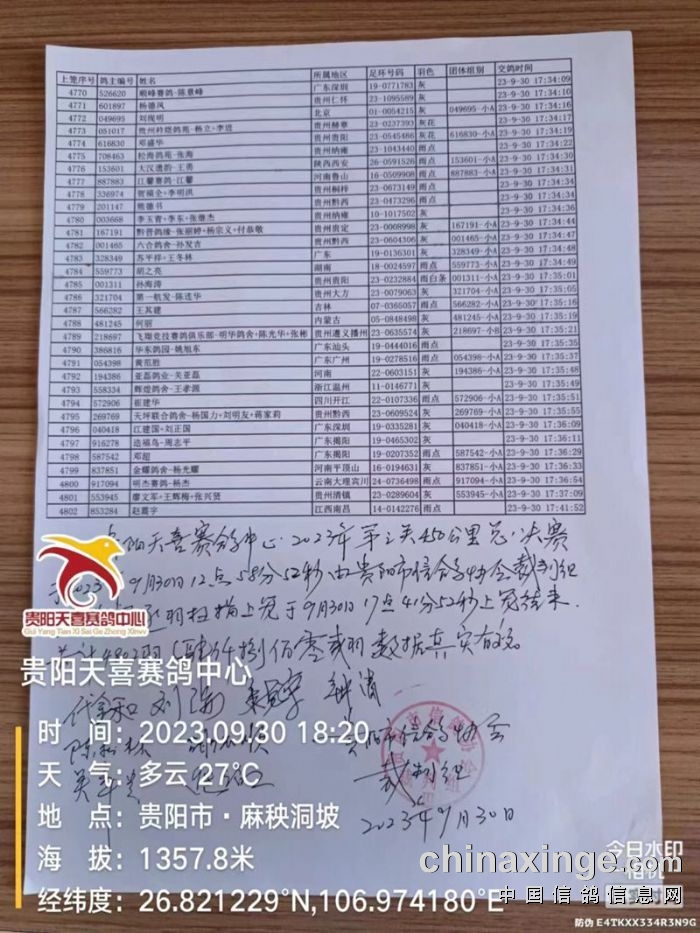 上笼序号 鸽主编号 姓名 所属地区 足环号码 羽色 团体组别 交鸽时间
4770 526620 顺峰赛鸽-陈章峰 广东深圳 19-0771783 灰 23-9-30 17:34:09
4771 601897 杨德凤 贵州仁怀 23-1095589 灰 23-9-30 17:34:10
4772 049695 北京 01-0054215 灰 049695-小A 23-9-30 17:34:16
4773 051017 贵州 23-0237393 灰花 23-9-30 17:34:14
4774 616830 邓盛华 贵州贵阳 23-0545486 灰花 616830-小A 23-9-30 17:34:17
4775 708463 松海鸽苑-张海 贵州纳雍 23-1043440 雨点 23-9-30 17:34:19
4776 153601 大汉遗韵-王勇 陕西西安 26-0591526 雨点 153601-小A 23-9-30 17:34:22
4777 887883 江馨赛鸽-江馨 河南鲁山 16-0509908 雨点 887883-小A 23-9-30 17:34:30
4778 336974 贺福全+李明洪 贵州桐梓 23-0673149 雨点 23-9-30 17:34:31
4779 201147 熊德书 贵州黔西 23-0473296 雨点 23-9-30 17:34:34
4780 003668 李玉青+李东+张继杰 贵州纳雍 10-1017502 灰 23-9-30 17:34:36
4781 167191 黔晋鸽缘-张丽婷+杨宗义+付恭敬 贵州贵定 23-0008998 灰 167191-小A 23-9-30 17:34:44
4782 001465 六合鸽舍-孙发吉 贵州黔西 23-0604306 灰 001465-小A 23-9-30 17:34:47
4783 328349 苏平祥+王冬林 广东 19-0136301 灰 328349-小A 23-9-30 17:34:48
4784 559773 胡之亮 湖南 18-0024597 雨点 559773-小A 23-9-30 17:34:49
4785 001311 孙海涛 贵州贵阳 23-0232884 雨白条 001311-小A 23-9-30 17:35:01
4786 321704 第一航发-陈连华 贵州大方 23-0079063 灰 321704-小A 23-9-30 17:35:05
4787 566282 王其建 吉林 07-0365057 雨点 566282-小A 23-9-30 17:35:16
4788 481245 何丽 内蒙古 05-0848498 灰 481245-小A 23-9-30 17:35:19
4789 218697 飞翔竞技赛鸽俱乐部-明华鸽舍+陈光华+张彬 贵州遵义播州 23-0635574 灰 218697-小B 23-9-30 17:35:21
4790 386816 华东鸽园-姚旭东 广东汕头 19-0444016 雨点 23-9-30 17:35:35
4791 054398 黄范胜 广东广州 19-0278516 雨点 054398-小A 23-9-30 17:35:37
4792 194386 亚磊鸽业-关亚磊 河南 22-0603151 灰 194386-小A 23-9-30 17:35:48
4793 558334 辉煌鸽舍-王孝源 浙江温州 11-0146771 灰 23-9-30 17:35:49
4794 572906 崔建华 四川开江 22-0107336 雨点 572906-小A 23-9-30 17:35:51
4795 269769 天坪联合鸽舍-杨国力+刘明友+蒋家莉 贵州黔西 23-0609524 灰 269769-小A 23-9-30 17:35:55
4796 040418 江建国+刘正国 广东深圳 19-0335281 灰 040418-小A 23-9-30 17:35:55
4797 916278 造福鸟-周志平 广东揭阳 19-0465302 灰 23-9-30 17:36:11
4798 587542 邓超 广东揭阳 19-0207352 雨点 587542-小A 23-9-30 17:36:29
4799 837851 金耀鸽舍-杨光耀 河南平顶山 16-0194631 灰 837851-小A 23-9-30 17:36:33
4800 917094 明杰赛鸽-杨杰 云南大理宾川 24-0736498 雨点 917094-小A 23-9-30 17:36:54
4801 553945 廖文军+王辉梅+张兴贤 贵州清镇 23-0289604 灰 553945-小A 23-9-30 17:37:09
4802 853284 赵霭宇 江西南昌 14-0142276 雨点 23-9-30 17:41:52
阳天喜赛鸽中心2023年第三关450公里总决赛
于2023年9月30日12点58分52秒由贵阳市信鸽协会裁判组
羽扫描上笼于9月30日17点41分52秒上笼结束.
共计4802羽(肆仟捌佰零贰羽)数据真实有效
贵阳市信鸽协会
裁判组
2023年9月30日
贵阳天喜赛鸽中心
Gui Yang Tian Xi Sai Ge Zhong Xinvv
贵阳天喜赛鸽中心
时 间：2023.09.30 18:20
天 气：多云 27℃
地 点：贵阳市·麻秧洞坡
海 拔：1357.8米
经纬度：26.821229°N,106.974180°E
今日水印
相机
chinaxinge.com
中国信鸽信息网
防伪 E4TKXX334R3N9G